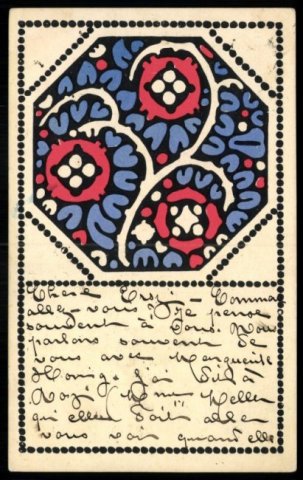 Chère Trezi — Comment
allez-vous? Je pense
souvent à vous. Nous
parlons souvent de
vous avec Marguerite
Honig. J'ai dit à
Mme Heller
qu'elle doit aller
vous voir quand elle